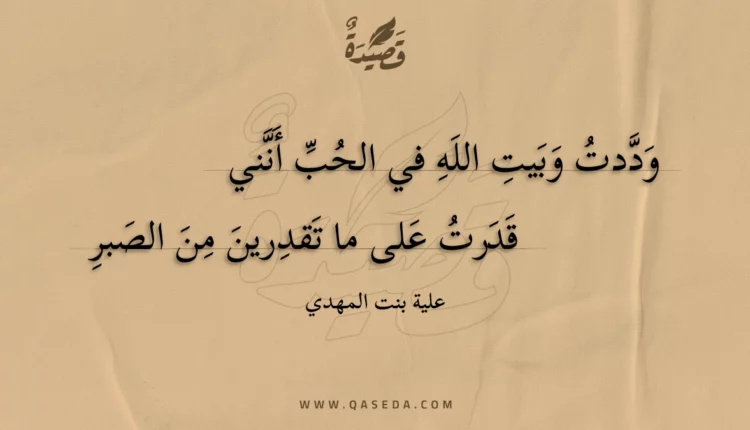 قَصِيْدَةٌ
وَدَّدتُ وَبَيتِ اللَهِ في الحُبِّ أَنَّني
قَدَرتُ عَلى ما تَقدِرينَ مِنَ الصَبرِ
علية بنت المهدي
WWW.QASEDA.COM